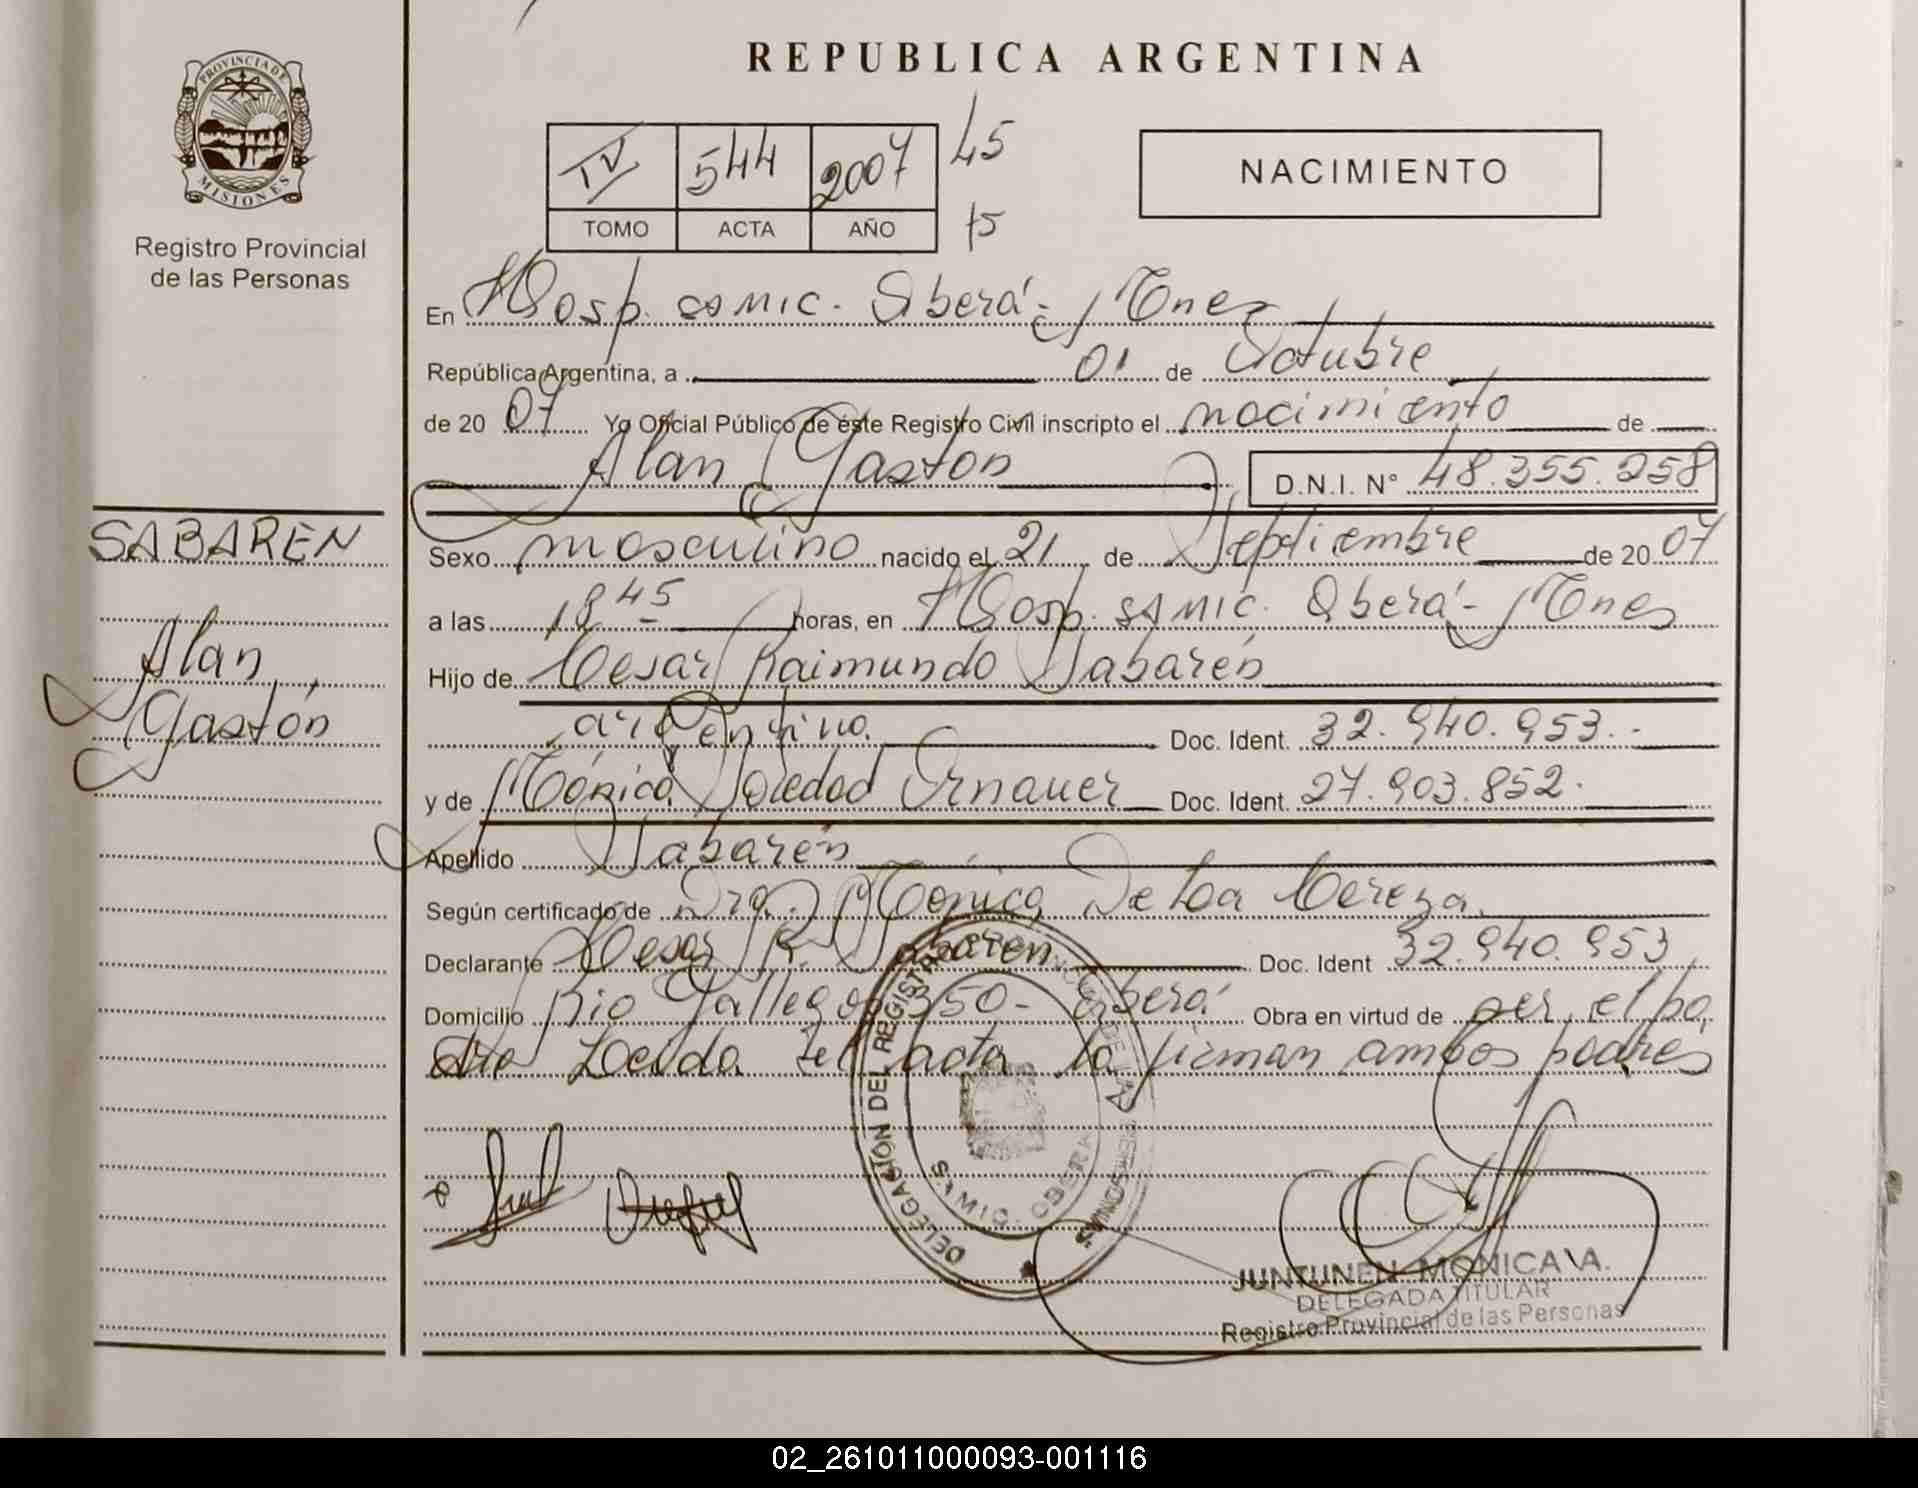 PROVINCIA DE
MISIONES
Registro Provincial
de las Personas
SABAREN
Alan
Gastón
REPUBLICA ARGENTINA
IV 544 2007 45
TOMO ACTA AÑO 15
NACIMIENTO
En Hosp. SAMIC. Oberá - Mnes
República Argentina, a 01 de Octubre
de 20 07 Yo Oficial Público de éste Registro Civil inscripto el nacimiento de
Alan Gastón D.N.I. N° 48.355.258
Sexo masculino nacido el 21 de Septiembre de 20 07
a las 18 45 horas, en Hosp. SAMIC. Oberá - Mnes
Hijo de Cesar Raimundo Sabarén
argentino. Doc. Ident. 32.940.953.-
y de Mónica Soledad Ornauer Doc. Ident. 27.903.852.
Apellido Sabarén
Según certificado de Dra. Mónica De La Cereza.
Declarante Cesar R. Sabaren Doc. Ident 32.940.953
Domicilio Rio Gallegos 350 - Oberá. Obra en virtud de ser el pa
dre Leída el acta la firman ambos padres
DELEGACIÓN DEL REGISTRO
OBERA
JUNTUNEN MONICA A.
DELEGADA TITULAR
Registro Provincial de las Personas
02_261011000093-001116